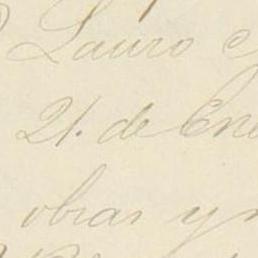 Lauro
21. de Ene
obras y